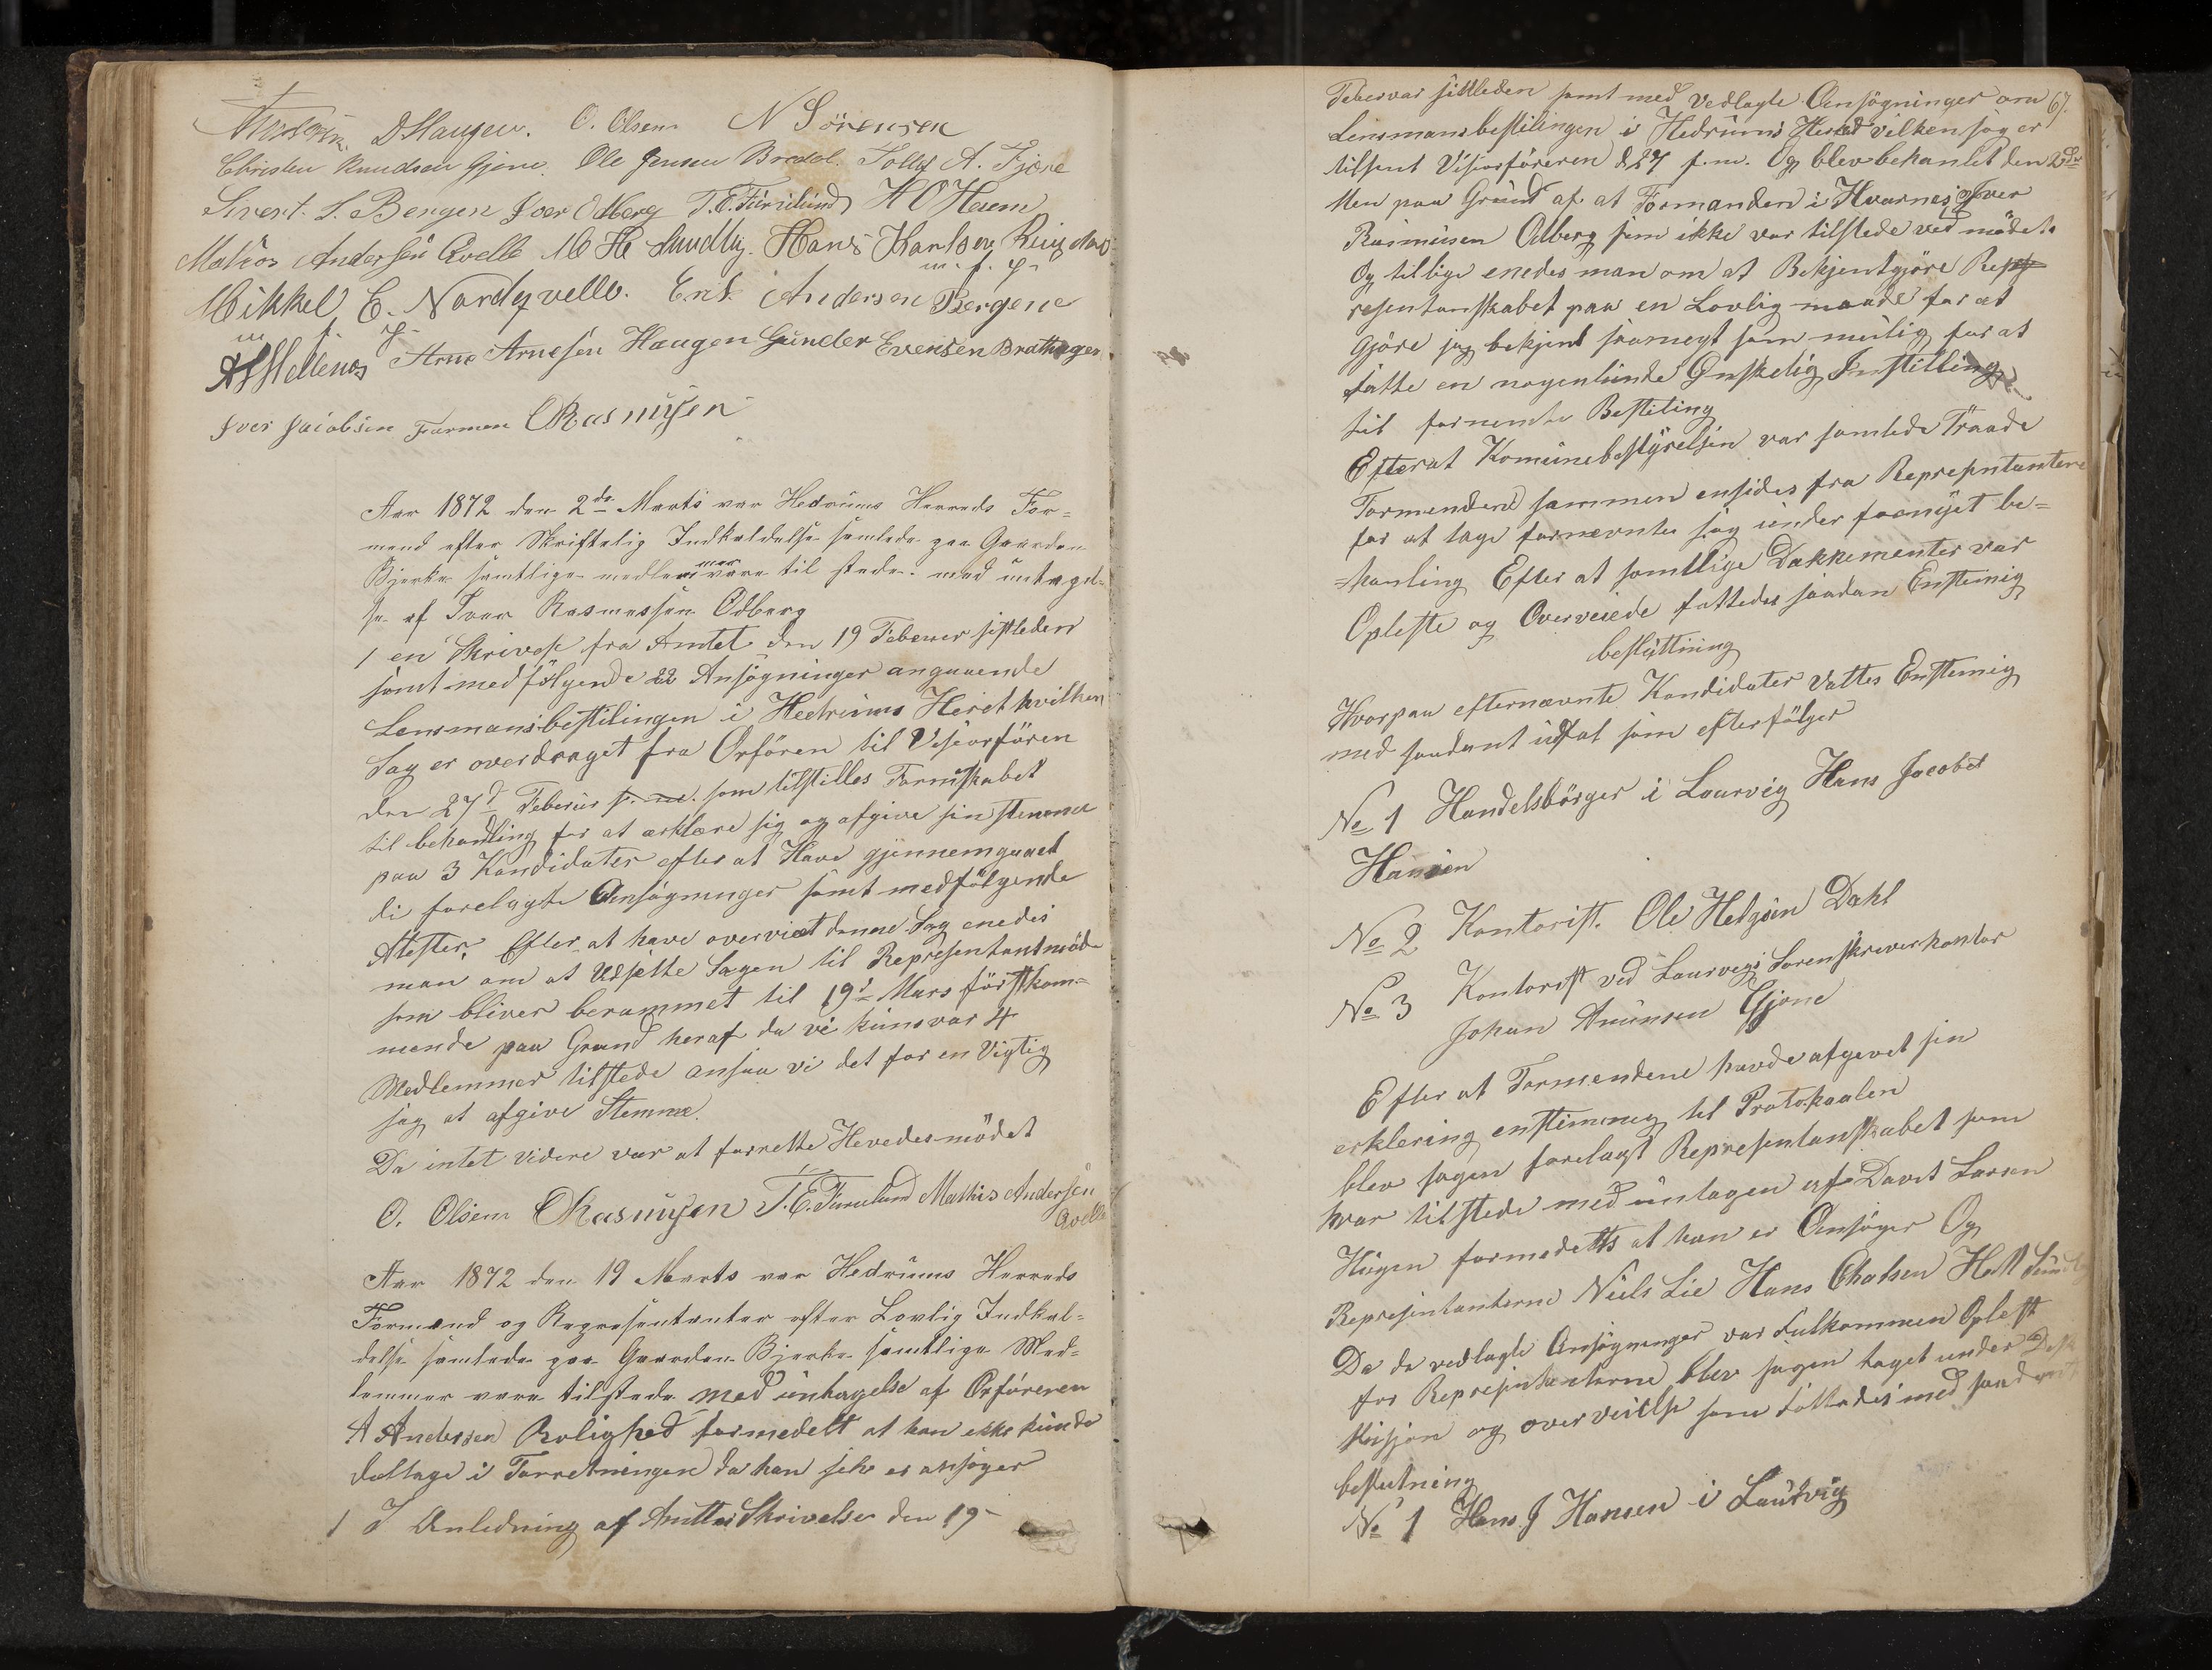 D Haugen. O. Olsen N Sörensen
Christen Knudsen Gjone. Ole Jensen Bredal. Tollef A. Fjære
Sivert. S. Bergen Iver Odberg T. E. Furulund H O Heum
Matios Andersen Qvelle M H Sundby. Hans Karlsen Ringdal
m. f. P.
Mikkel E. Nordqvelle. Erik Andersen Bergene
m f. P.
Arne Arnesen Haugen Gunder Evensen Brathagen
Iver Jacobsen Farmen O Rasmusen
Aar 1872 den 2de Marts var Hedrums Herreds For=
mend efter Skriftelig Indkaldelse samlede paa Gaarden
Bjerke samtlige medlemmer vare til stede. med untagel-
se af Iver Rasmussen Odberg
1 en Skrivelse fra Amtet den 19 Feberuer sistleden
samt medfölgende 22 Ansögninger angaaende
Lensmansbestilingen i Hedrums Heret hvilken
Sag er overdraget fra Orfören til Viseorfören
den 27d Feberur f. m. som tilstilles Formskabet
til behandling for at erklære sig og afgive sin stemme
paa 3 Kandidater efter at Have gjennemgaaet
di forelagte Ansögninger samt medfölgende
Atester. Efter at have overviet denne Sag enedes
man om at Udsætte Sagen til Representantmöde
som bliver berammet til 19d Mars förstkom=
mende paa Grund heraf da vi kuns var 4
Medlemmer tilstede ansaa vi det for en Vigtig
sag at afgive Stemme.
Da intet videre var at forrette Hevedes mödet
O. Olsen O Rasmusen T. E. Furulund Mathis Andersen
Qvelle
Aar 1872 den 19 Marts var Hedrums Herreds
Formænd og Representanter efter Lovlig Indkal=
delse samlede paa Gaarden Bjerke samtlige Med=
lemmer vare tilstede med untagelse af Orföreren
A Andersen Rolighed formedelt at han ikke kunde
deltage i Forretningen da han selv er ansöger
1 I Anledning af Amttes Skrivelse den 19-
67.
Feberuar sistleden samt med vedlagte Ansögninger om
Lensmansbestilingen i Hedrums Hered vilken sag er
tilsent Viseorföreren d 27 f. m. Og blev behanlet den 2de
Men paa Grund af at Formanden i Hvarnes Iver
Rasmusen Odberg som ikke var tilstede ved mödet.
Og tillige enedes man om at Bekjentgjöre Rep
resentanskabet paa en Lovlig maade for at
Gjöre sag bekjent saameget som mulig for at
fatte en nogenlunde Ønskelig Instilling
til fornemte Bestiling
Efter at Komunebestyrelsen var samlede Traade
Formendene sammen ensides fra Representantene
for at tage fornævnte sag under fornyet be=
=hanling Efter at samtlige Dokkementer var
Opleste og Overveiede fattedes saadan Enstemig
beslutning
Hvorpaa efternævnte Kandidater Vattes Enstemig
med saadant udfal som efterfölger
No 1 Handelsbörger i Laurvig Hans Jacobet
Hansen
No 2 Kontorist. Ole Helgsen Dahl
No 3 Kontorist ved Laurvigs Sorenskriverkontor
Johan Amunsen Gjone
Efter at Formendene havde afgevet sin
erklering enstimmig til Protokaalen
blev sagen forelagt Representanskabet som
hvar tilstede med untagen af Davet Larsen
Haugen formedelts at han er Ansöger Og
Representanterne Niels Lie Hans Olsen
Da de vedlagte Ansögninger var fulkommen Oplest
for Representanterne blev sagen taget under Disk
kusjon og overveielse som fattedes med saadant
beslutning
No 1 Hans J Hansen i Laurvig